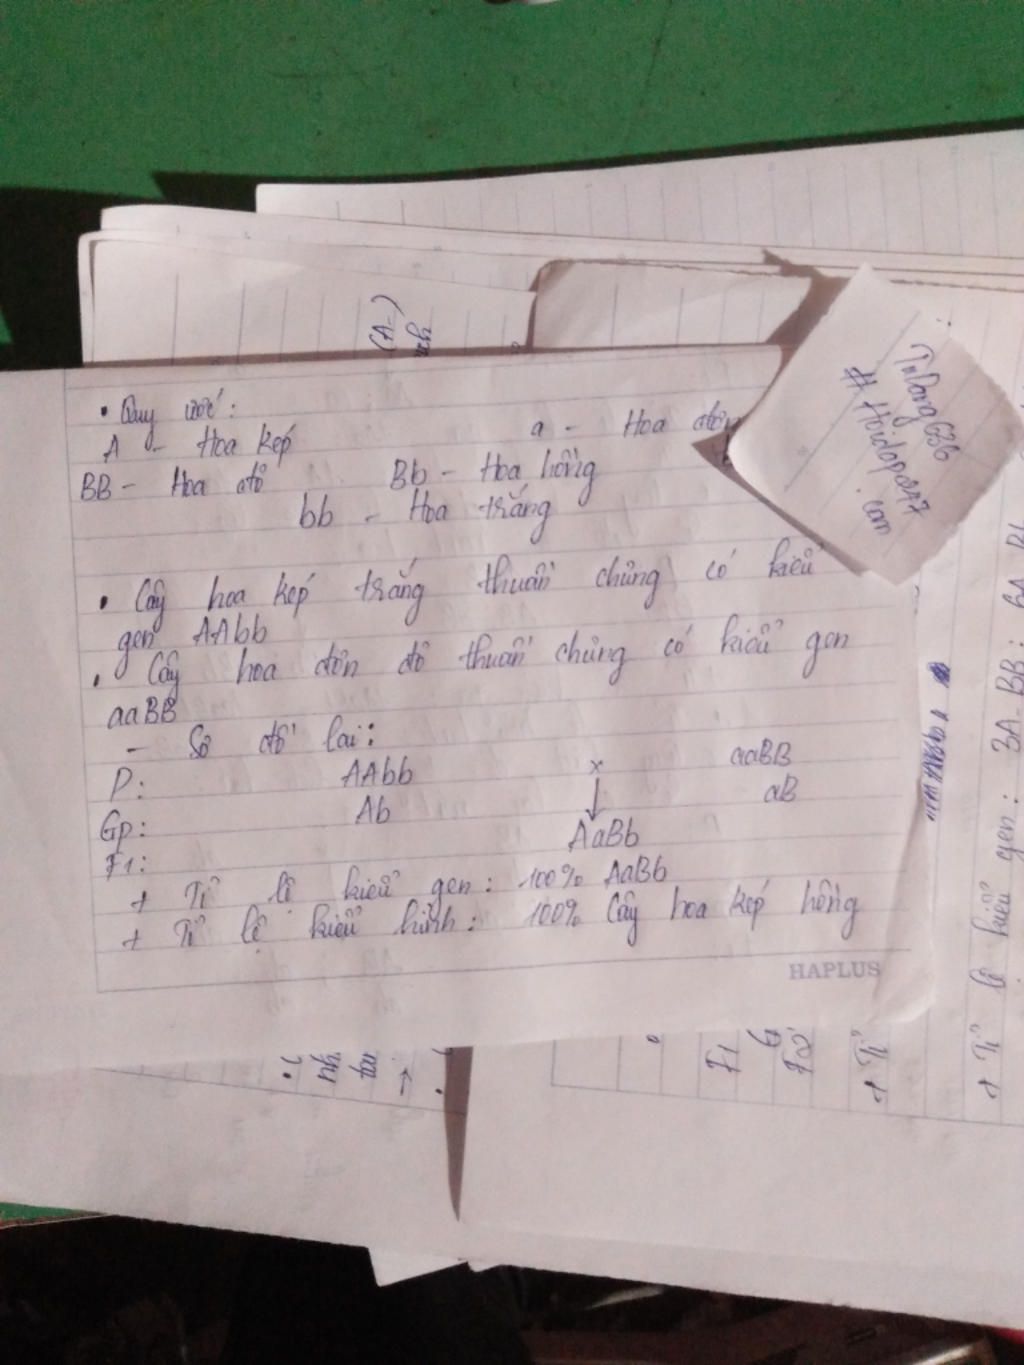 • Quy ước:
A - Hoa kép a - Hoa đơn
BB - Hoa đỏ Bb - Hoa hồng
bb - Hoa trắng
• Cây hoa kép trắng thuần chủng có kiểu
gen AAbb
• Cây hoa đơn đỏ thuần chủng có kiểu gen
aaBB
- Sơ đồ lai:
P: AAbb x aaBB
Gp: Ab aB
F1: AaBb
+ Tỉ lệ kiểu gen: 100% AaBb
+ Tỉ lệ kiểu hình: 100% Cây hoa kép hồng
HAPLUS
# Hoidap247
.com
(A-)
F1
+ Tỉ
+ Tỉ lệ kiểu gen: 3A-BB: